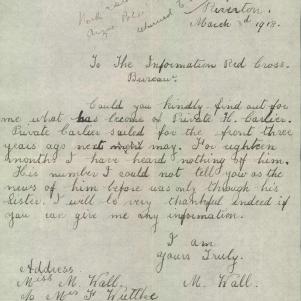 Riverton.
March 3rd 1918.
To The Information Red Cross.
Bureau:
Could you kindly find out for
me what has become of Private H. Carlier.
Private Carlier sailed for the front three
years ago next may. For eighteen
months I have heard nothing of him.
His number I could not tell you as the
news of him before was only through his
Sister. I will be very thankful indeed if
you can give me any information.
I am
Yours Truly.
Address
M. Wall.
Miss M. Wall.